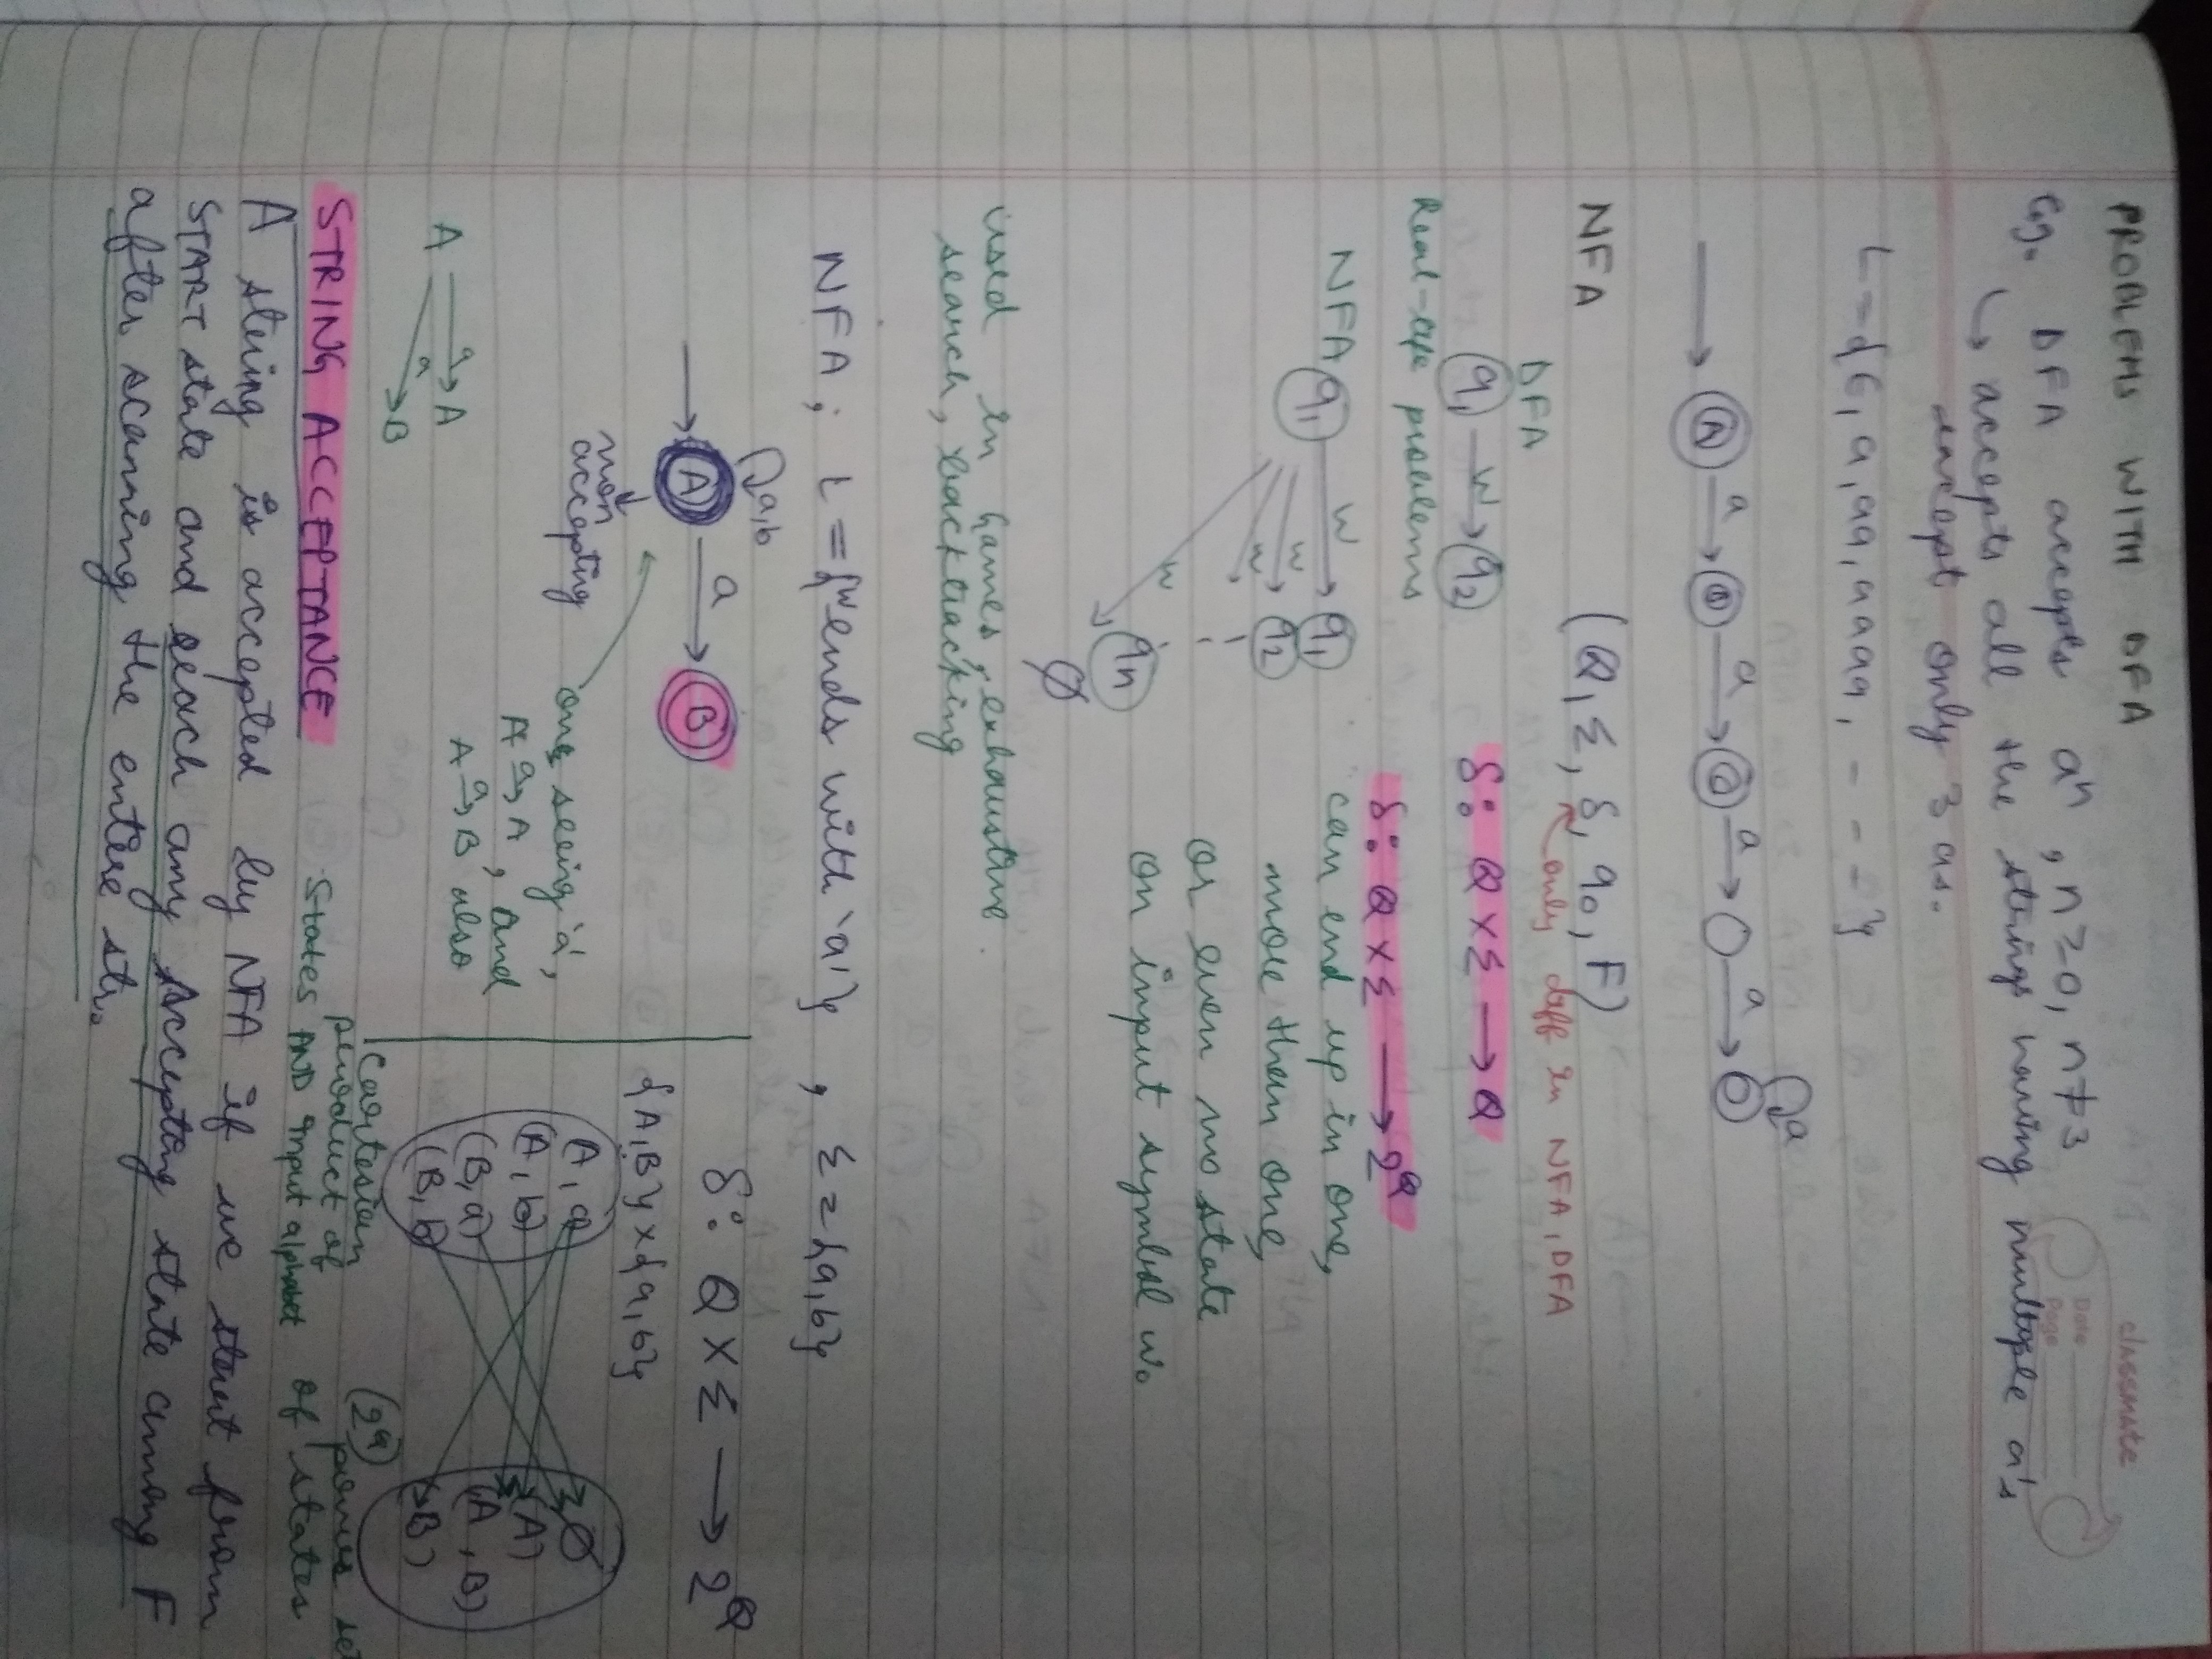 classmate
Date
Page
PROBLEMS WITH DFA
Eg. DFA accepts aⁿ, n≥0, n≠3
↳ accepts all the strings having multiple a's
except only 3 as.
L={ϵ, a, aa, aaaa, - - - -}
→ A a→ B a→ C a→ ○ a→ ○ a
NFA (Q, Σ, δ, q0, F)
only diff in NFA, DFA
DFA
q1 w→ q2 δ: Q × Σ → Q
Real-life problems
δ: Q × Σ → 2^Q
NFA q1 w→ q1 can end up in one,
w w q2 more than one,
w qn or even no state
∅ on input symbol w.
used in games, exhaustive
search, backtracking
NFA; L = {"ends with 'a'} , Σ={a,b}
a,b
→ A a→ B
non accepting
one seeing 'a',
A a→ A, and
A a→ B also
A a→ A
a→ B
δ: Q × Σ → 2^Q
{A,B} × {a,b}
A, a ∅
(A, b) (A)
(B, a) (A, B)
(B, b) B)
Cartesian
product of
States AND input alphabet
(2^Q) power set
of states
STRING ACCEPTANCE
A string is accepted by NFA if we start from
START state and reach any accepting state among F
after scanning the entire str.